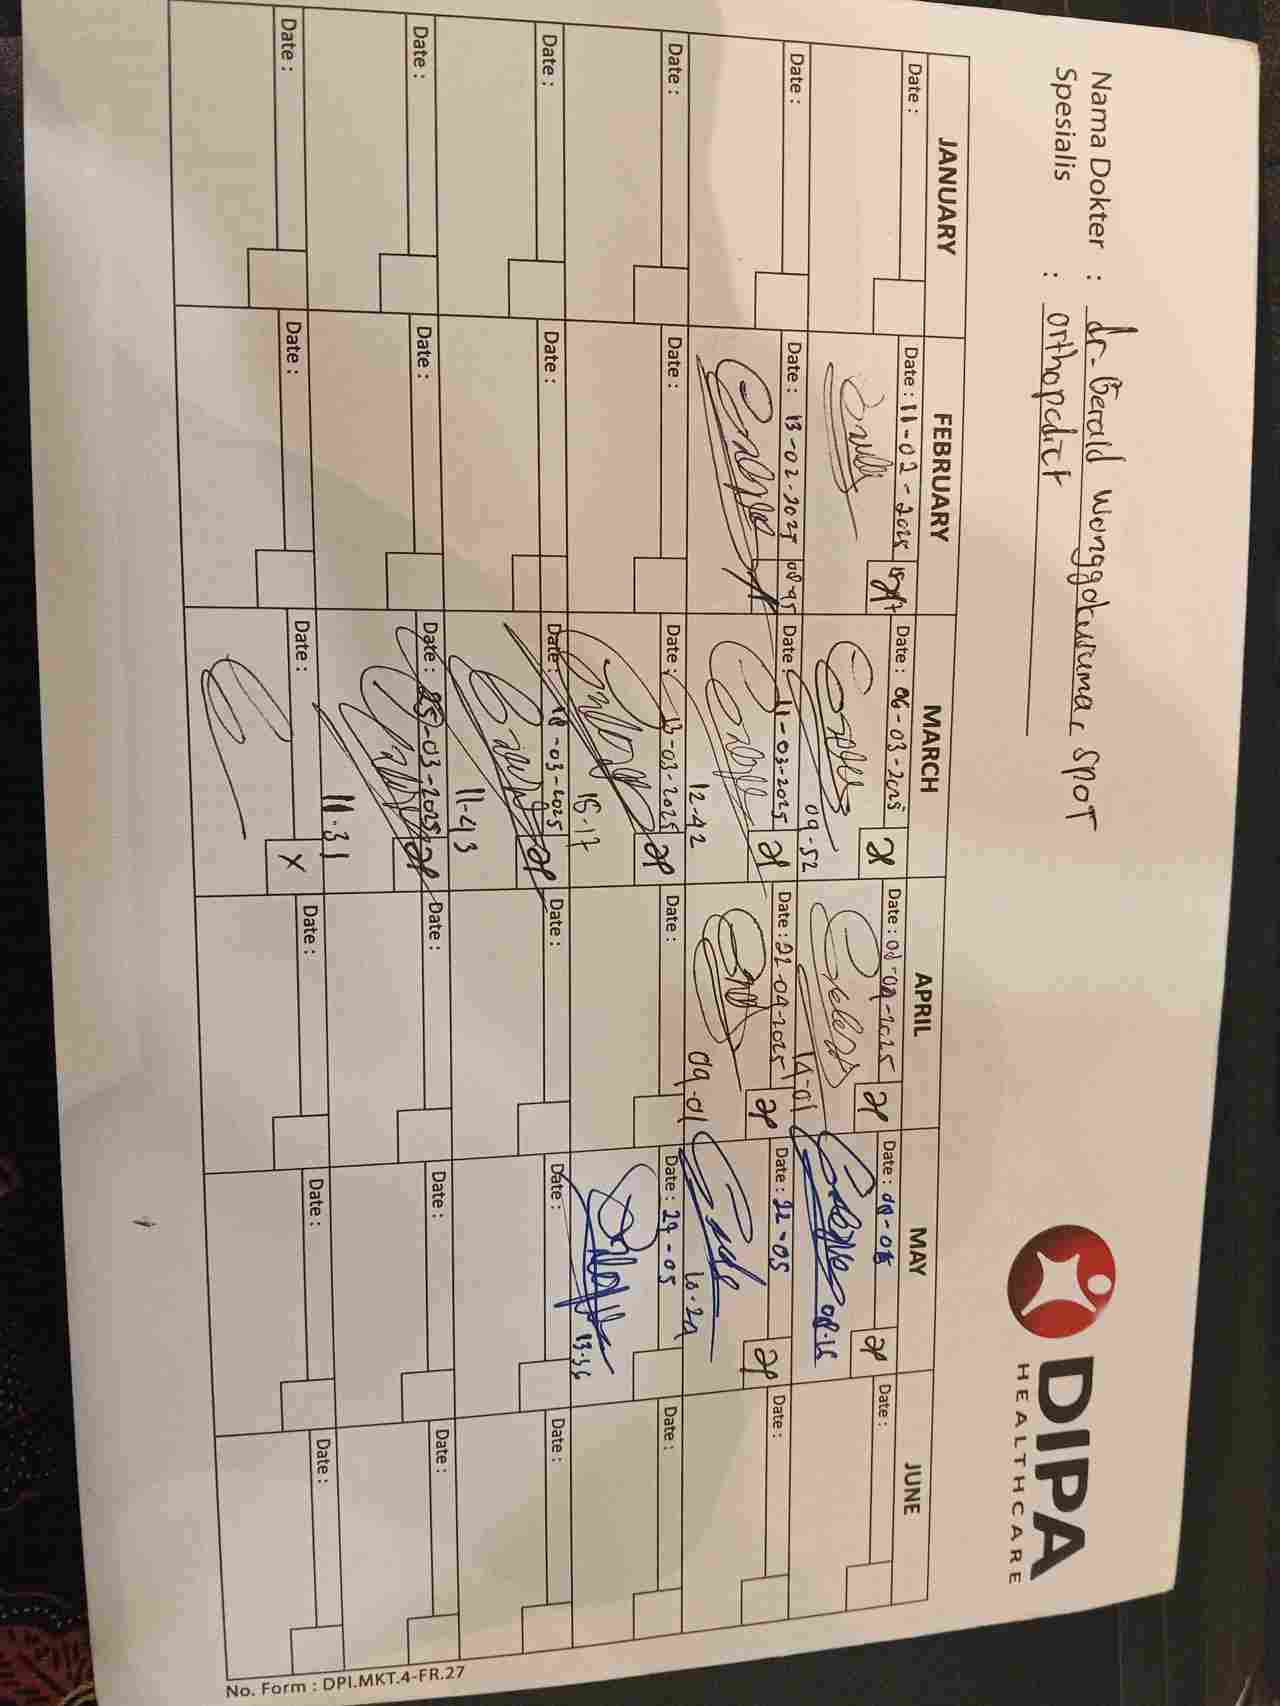 Nama Dokter : dr. Gerald Wonggokusuma, SpOT
Spesialis : Orthopedict
DIPA
HEALTHCARE
JANUARY FEBRUARY MARCH APRIL MAY JUNE
Date : Date : 11-02-2025 Date : 06-03-2025 Date : 08-04-2025 Date : 08-05 Date :
09-52 14-01 08-16
Date : Date : 13-02-2025 08-45 Date : 11-03-2025 Date : 22-04-2025 Date : 22-05 Date :
12-42 09-01 10-24
Date : Date : Date : 13-03-2025 Date : Date : 29-05 Date :
15-17 13-36
Date : Date : Date : 18-03-2025 Date : Date : Date :
11-43
Date : Date : Date : 25-03-2025 Date : Date : Date :
11.31
Date : Date : Date : X Date : Date : Date :
No. Form : DPI.MKT.4-FR.27